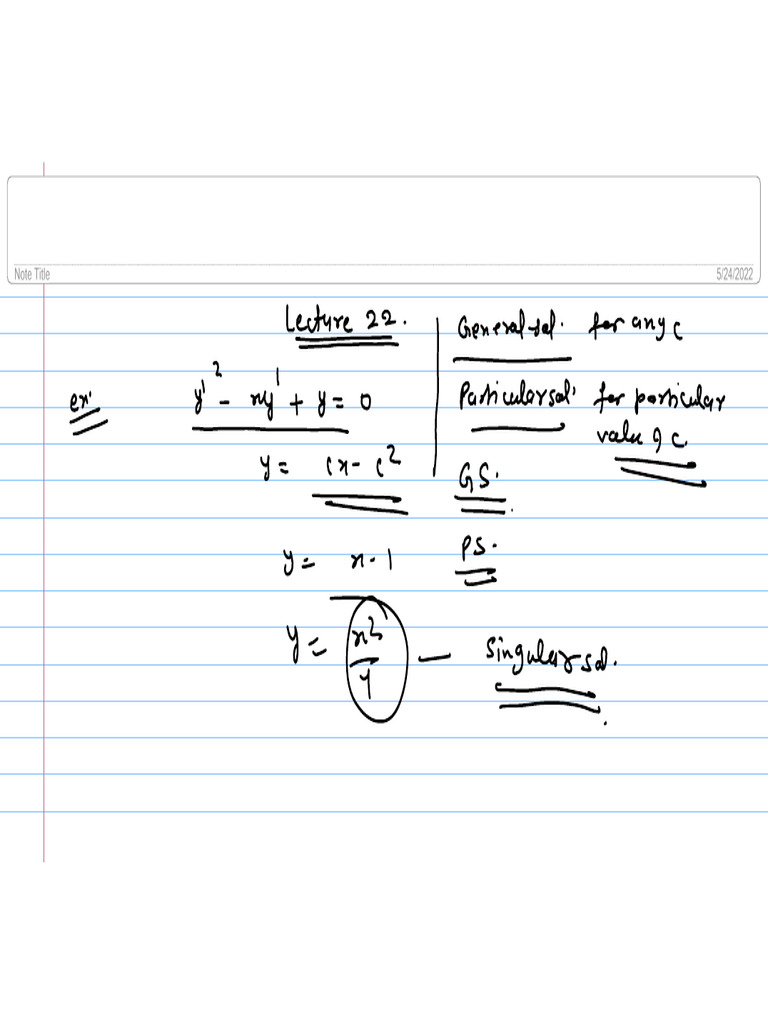 Note Title
5/24/2022
Lecture 22.
General sol. for any c
ex:
y'² - xy' + y = 0
Particular sol: for particular
value of c
y = cx - c²
GS.
y = x - 1
PS.
y = x²/4 — Singular sol.